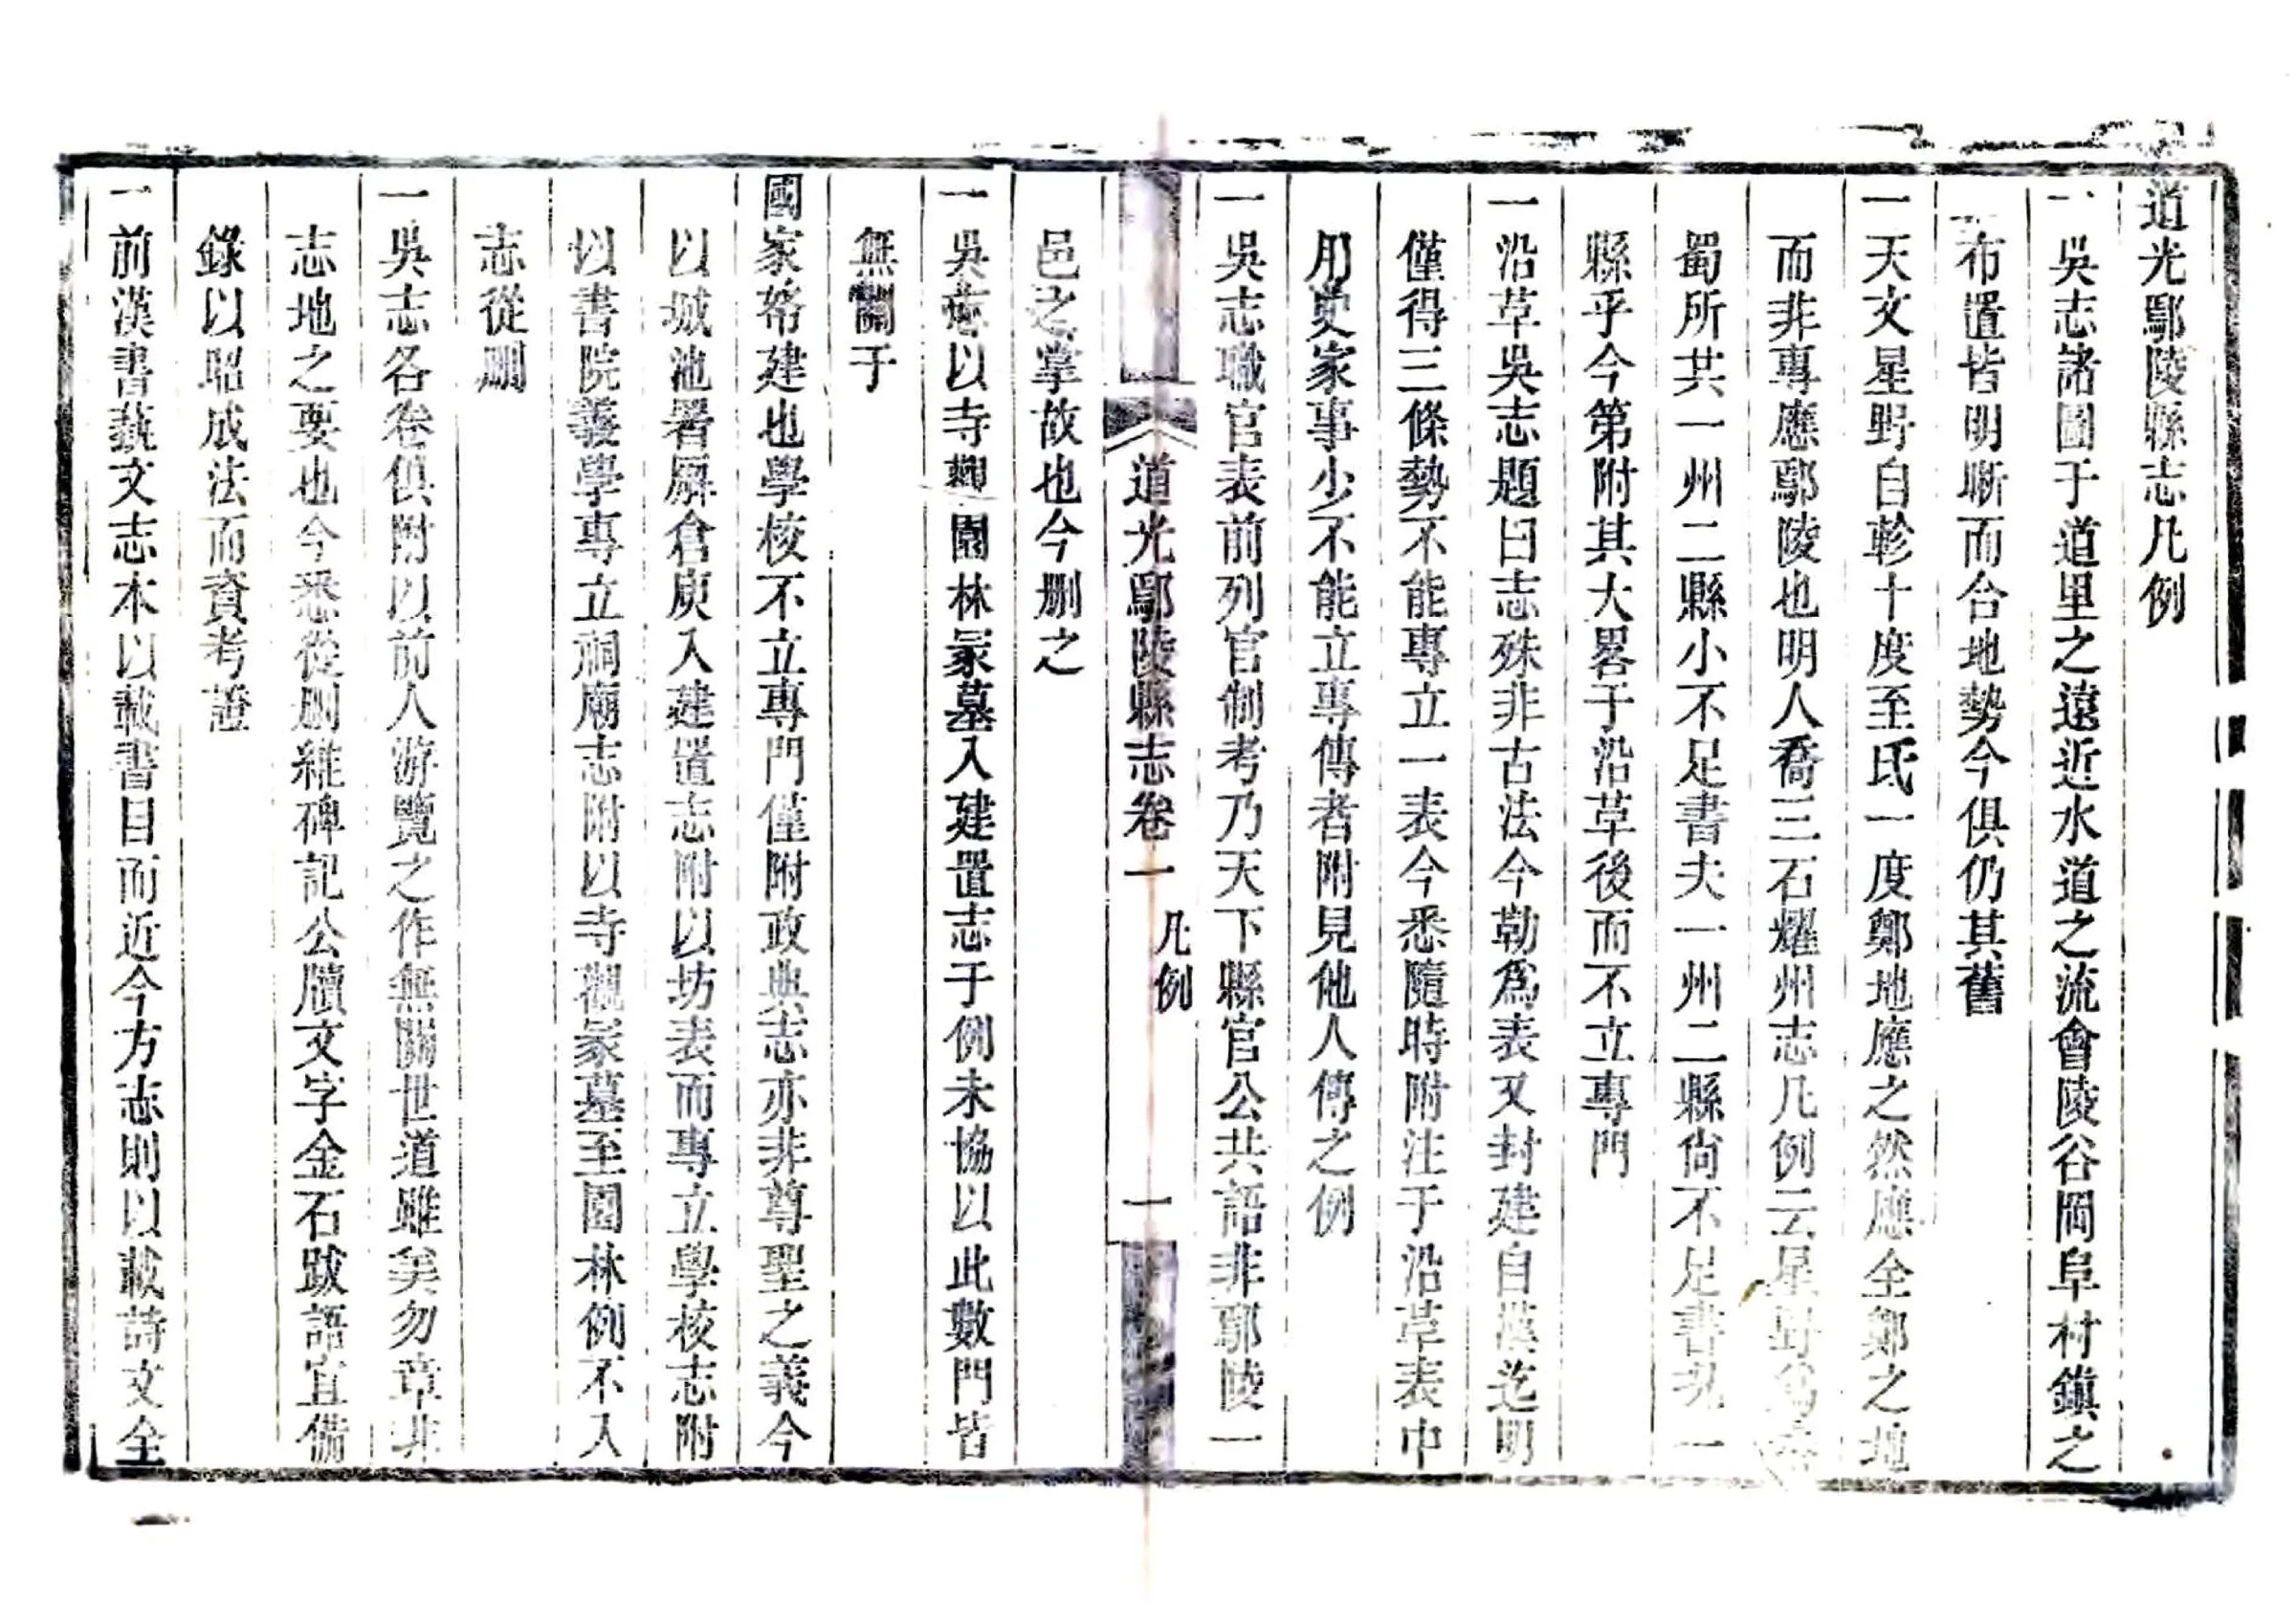 道光鄢陵縣志凡例
一吳志諸圖于道里之遠近水道之流會陵谷岡阜村鎮之
布置皆明晰而合地勢今俱仍其舊
一天文星野自軫十度至氐一度鄭地應之然應全鄭之地
而非專應鄢陵也明人喬三石耀州志凡例云星野為
蜀所共一州二縣小不足書夫一州二縣尙不足書況一
縣乎今第附其大畧于沿革後而不立專門
一沿革吳志題曰志殊非古法今勒爲表又封建自漢迄明
僅得三條勢不能專立一表今悉隨時附注于沿革表中
用史家事少不能立專傳者附見他人傳之例
一吳志職官表前列官制考乃天下縣官公共語非鄢陵一
道光鄢陵縣志卷一 凡例 一
邑之掌故也今删之
一吳志以寺觀園林冢墓入建置志于例未協以此數門皆
無關于
國家俗建也學校不立專門僅附政典志亦非尊聖之義今
以城池署廨倉庾入建置志附以坊表而專立學校志附
以書院義學專立祠廟志附以寺觀冢墓至園林例不入
志從删
一吳志各卷俱附以前人游覽之作無關世道雖美勿章非
志地之要也今悉從删維碑記公牘文字金石跋語宜備
錄以昭成法而資考證
一前漢書藝文志本以載書目而近今方志則以載詩文全